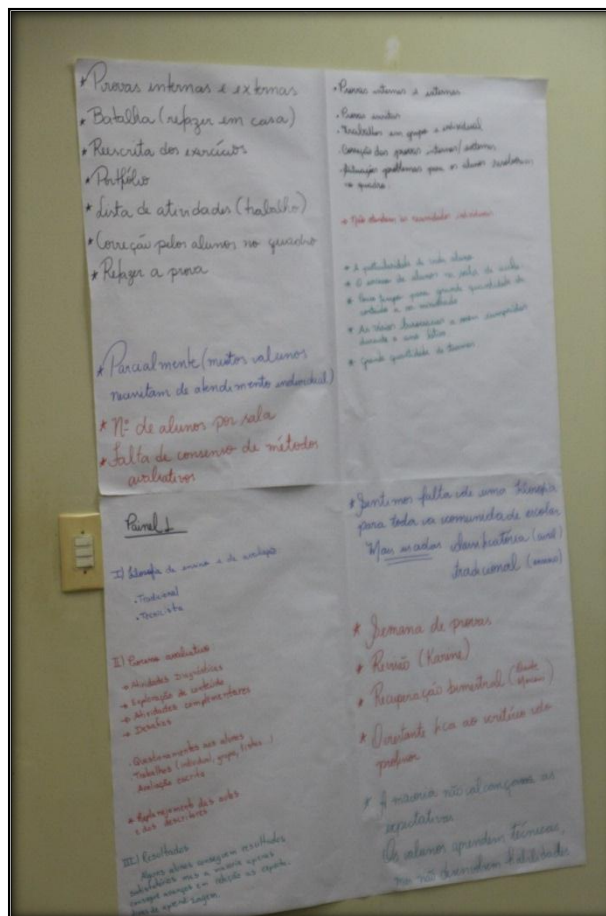 * Provas internas e externas
* Batalha (refazer em casa)
* Reescrita dos exercícios
* Portfólio
* Lista de atividades (trabalho)
* Correção pelos alunos no quadro
* Refazer a prova
* Parcialmente (muitos alunos
necessitam de atendimento individual)
* Nº de alunos por sala
* Falta de consenso de métodos
avaliativos
• Provas internas e externas
• Provas escritas
• Trabalhos em grupo e individual
Correção das provas internas/externas
situação problemas para os alunos resolverem
no quadro.
* Não atendem às necessidades
* A particularidade de cada aluno
* O número de alunos na sala de aula
* Pouco tempo para grande quantidade de
conteúdo a ser
* As várias a serem cumpridos
durante o ano letivo
* Grande quantidade de
Painel 1
I) Filosofia de ensino e de avaliação
• Tradicional
• Tecnicista
II) Processo avaliativo
→ Atividades Diagnósticas
→ Exploração de conteúdo
→ Atividades complementares
→ Desafios
Questionamentos aos alunos
Trabalhos (individual, grupo, listas...)
Avaliação escrita
* Replanejamento das aulas
e dos descritores
III) Resultados
Alguns alunos conseguem resultados
satisfatórios mas a maioria apenas
consegue avanços em relação as
de aprendizagem
* Sentimos falta de uma filosofia
para toda a comunidade escolar
Mais usadas classificatória (aval)
tradicional (ensino)
* Semana de provas
* Revisão (Karine)
* Recuperação bimestral
* O restante fica ao critério do
professor
* A maioria não alcançamos as
expectativas
Os alunos aprendem técnicas,
mas não desenvolvem habilidades